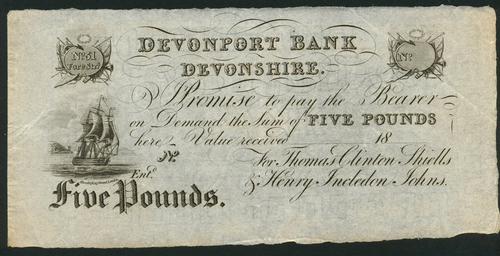 No. 51
Fore Str.
No.
DEVONPORT BANK
DEVONSHIRE.
I Promise to pay the Bearer
on Demand the Sum of FIVE POUNDS
here Value received 18
No.
For Thomas Clinton Shiells
& Henry Incledon Johns.
Entd.
Five Pounds.